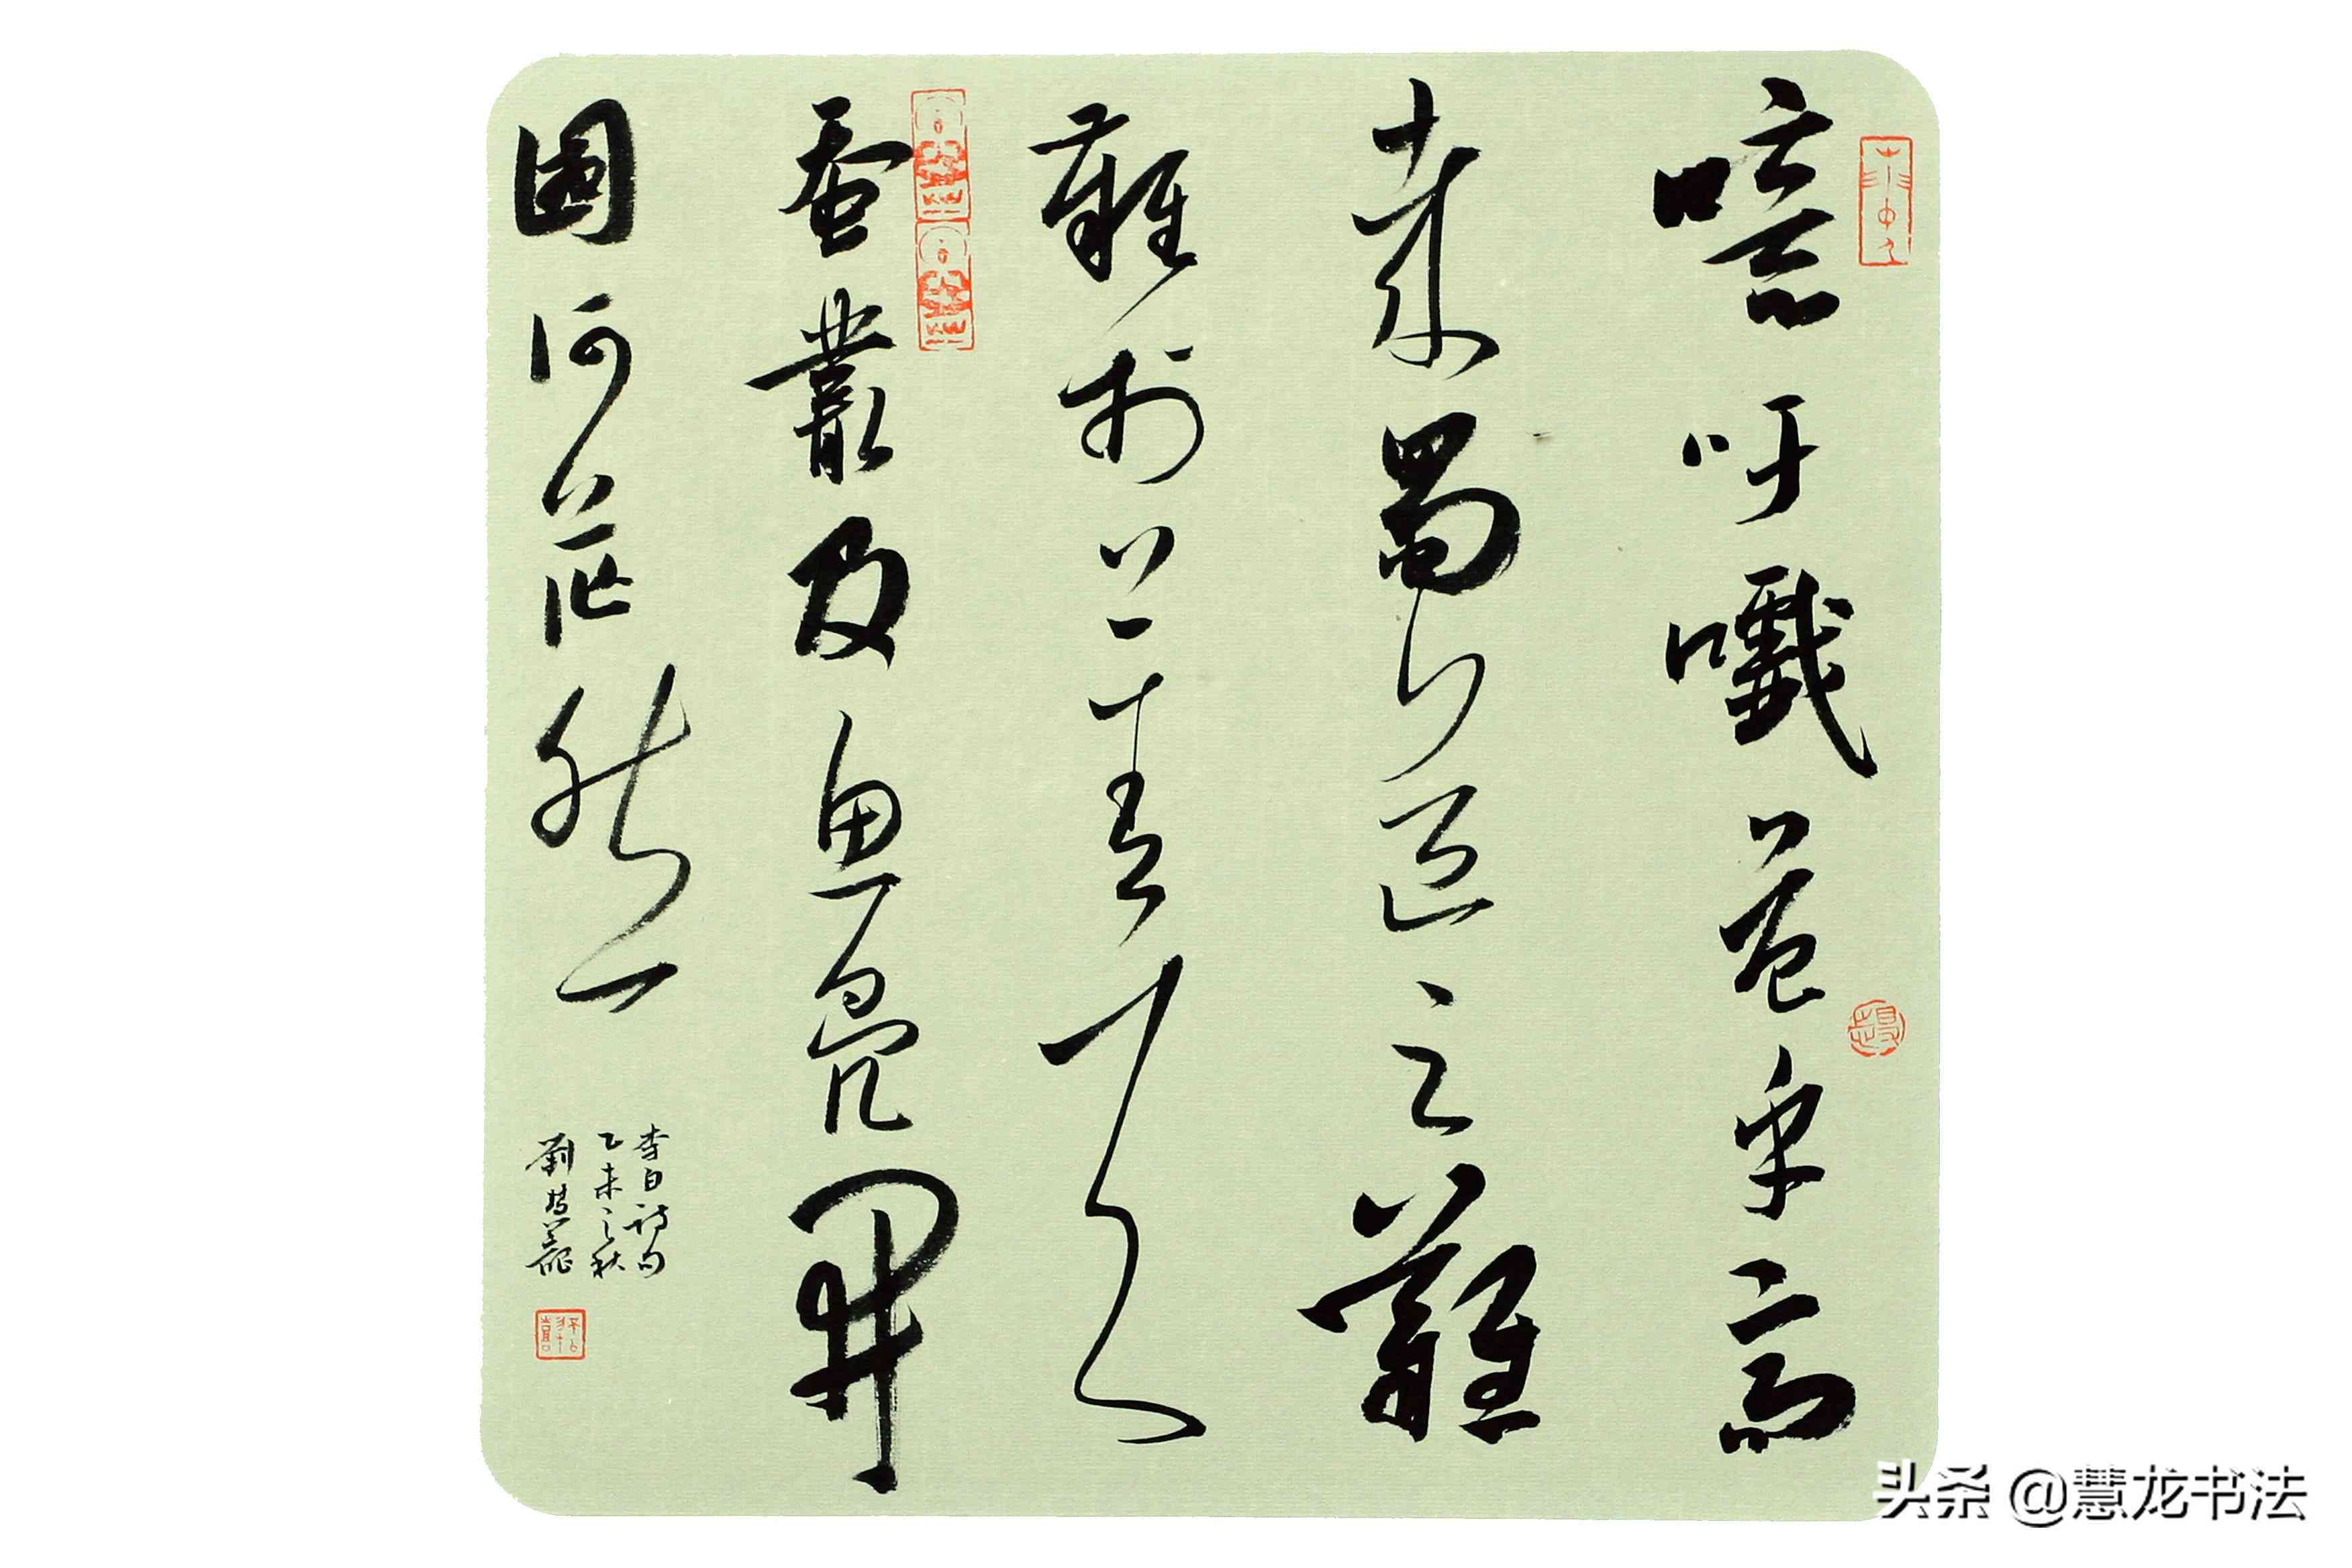 噫吁嚱危乎高
哉蜀道之難
難於上青天
蚕叢及魚鳧開
國何茫然
李白詩句
乙未之秋
劉慧龍
头条 @慧龙书法